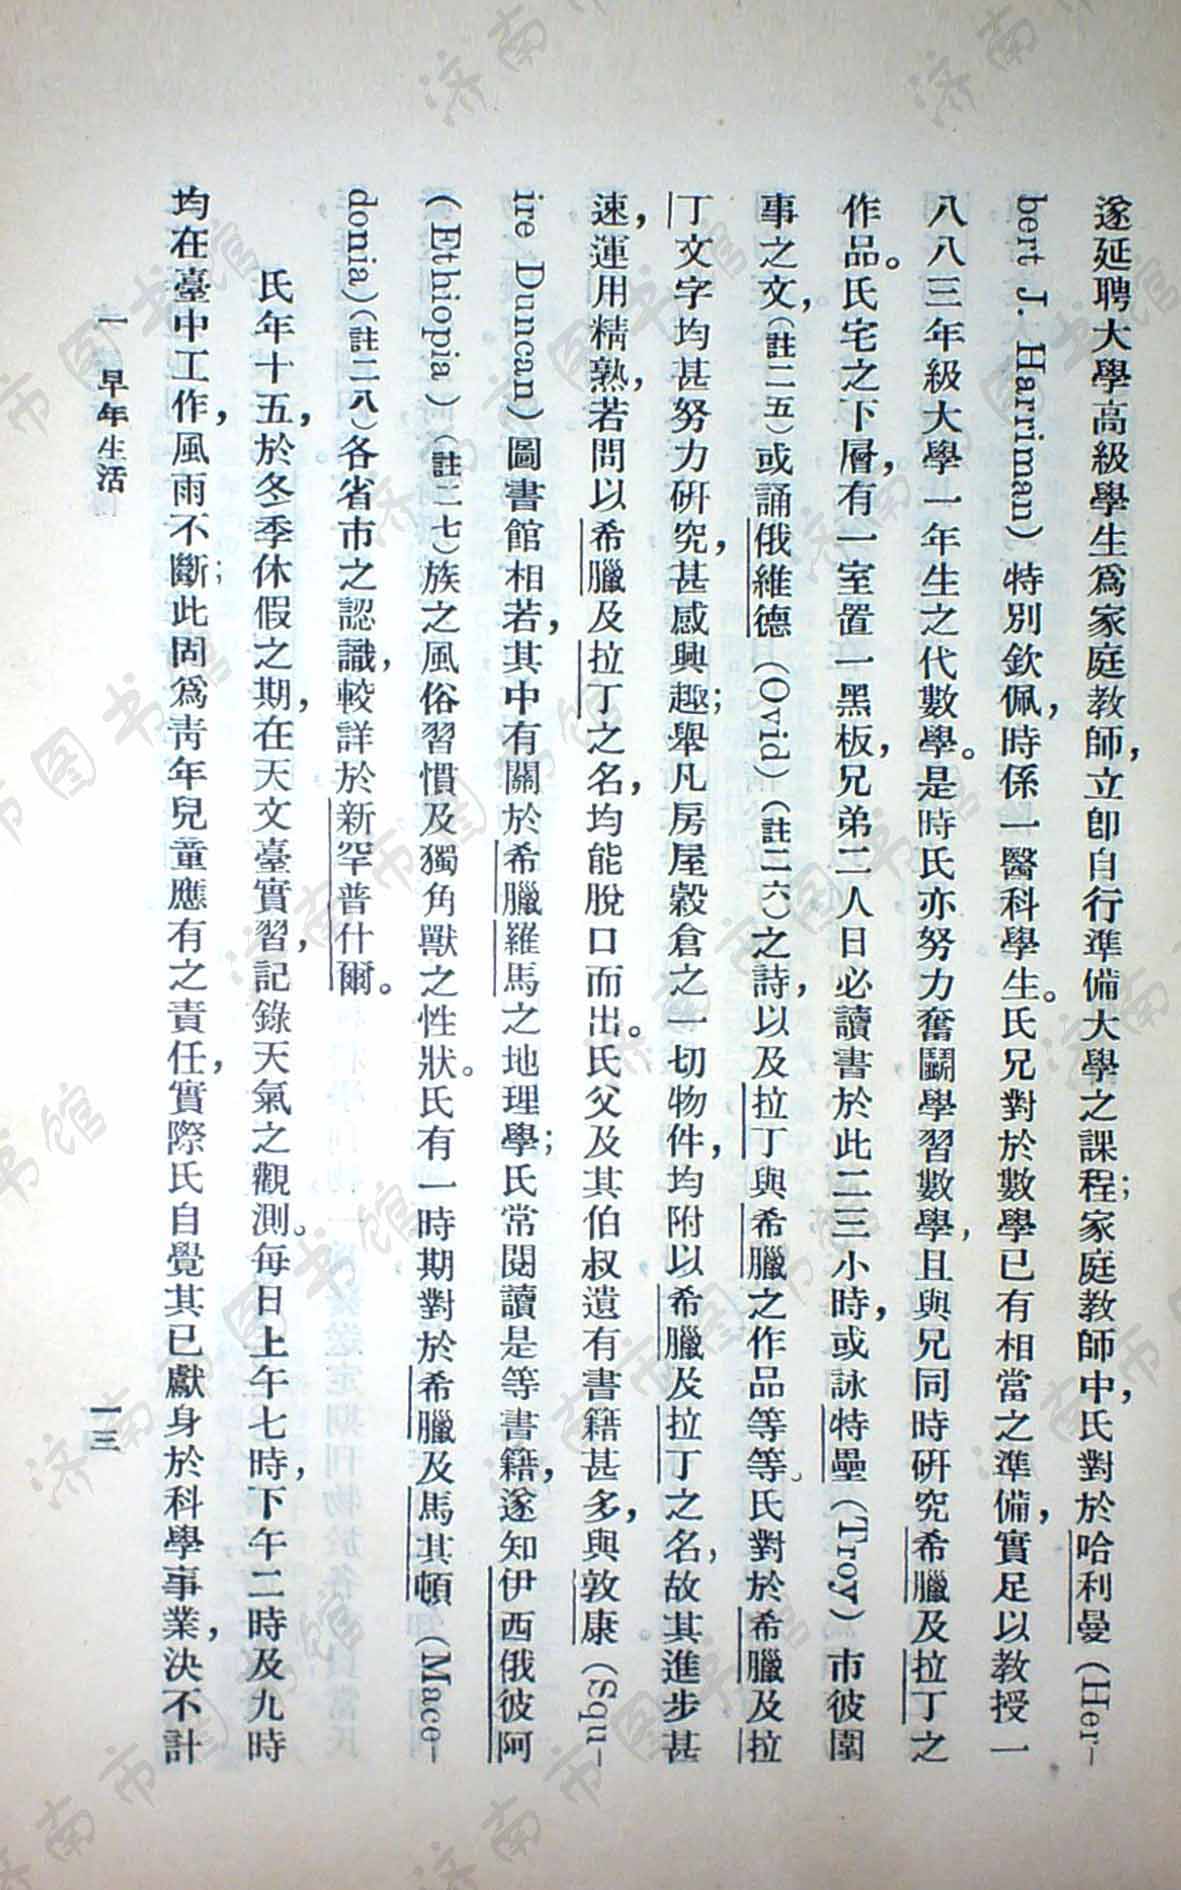 遂延聘大學高級學生爲家庭教師，立卽自行準備大學之課程；家庭教師中，氏對於哈利曼（Her-
bert J. Harriman）特別欽佩，時係一醫科學生。氏兄對於數學已有相當之準備，實足以教授一
八八三年級大學一年生之代數學。是時氏亦努力奮鬭學習數學，且與兄同時硏究希臘及拉丁之
作品。氏宅之下層，有一室置一黑板，兄弟二人日必讀書於此二三小時，或詠特壘（Troy）市彼圍
事之文，（註二五）或誦俄維德（Ovid）（註二六）之詩，以及拉丁與希臘之作品等等。氏對於希臘及拉
丁文字均甚努力硏究，甚感興趣；舉凡房屋穀倉之一切物件，均附以希臘及拉丁之名，故其進步甚
速，運用精熟，若問以希臘及拉丁之名，均能脫口而出。氏父及其伯叔遺有書籍甚多，與敦康（Squ-
ire Duncan）圖書館相若，其中有關於希臘羅馬之地理學；氏常閱讀是等書籍，遂知伊西俄彼阿
（Ethiopia）（註二七）族之風俗習慣及獨角獸之性狀。氏有一時期對於希臘及馬其頓（Mace-
donia）（註二八）各省市之認識，較詳於新罕普什爾。
氏年十五，於冬季休假之期，在天文臺實習，記錄天氣之觀測。每日上午七時，下午二時及九時
均在臺中工作，風雨不斷；此固爲靑年兒童應有之責任，實際氏自覺其已獻身於科學事業，決不計
一 早年生活
一三
济南市图书馆